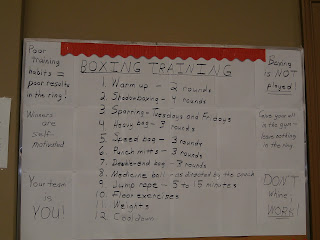 BOXING TRAINING
1. Warm up - 2 rounds
2. Shadowboxing - 4 rounds
3. Sparring - Tuesdays and Fridays
4. Heavy bag - 3 rounds
5. Speed bag - 3 rounds
6. Punch mitts - 3 rounds
7. Double-end bag - 3 rounds
8. Medicine ball - as directed by the coach
9. Jump rope - 5 to 15 minutes
10. Floor exercises
11. Weights
12. Cool down
Poor
training
habits =
poor results
in the ring!
Winners
are
self-
motivated
Your team
is
YOU!
Boxing
is NOT
played!
Give your all
in the gym -
leave nothing
in the ring
DON'T
whine
WORK!